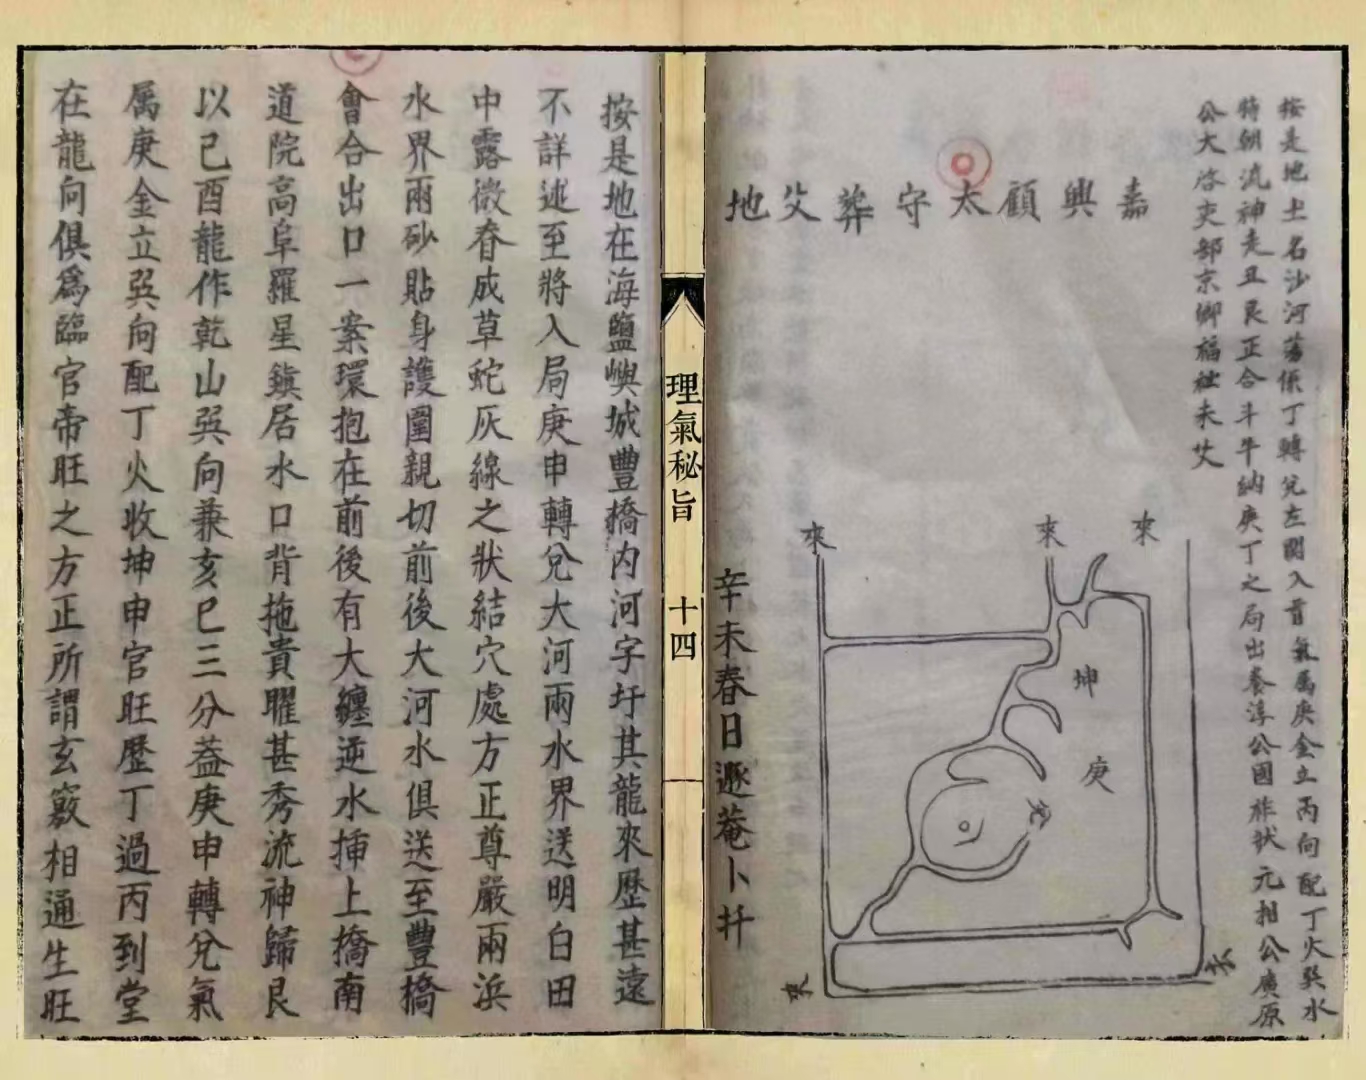 按是地土名沙河蕩係丁轉兌左關入首氣屬庚金立丙向配丁火巽水
特朝流神走丑艮正合斗牛納庚丁之局出養淳公國祚狀元相公廣原
公大啓吏部京卿福祉未艾
嘉興顧太守葬父地
來
來
來
坤
庚
兌
來
去
辛未春日遯菴卜扦
理氣秘旨
十四
按是地在海鹽嶼城豐橋内河字圩其龍來歷甚遠
不詳述至將入局庚申轉兌大河兩水界送明白田
中露微脊成草蛇灰線之狀結穴處方正尊嚴兩浜
水界兩砂貼身護圍親切前後大河水俱送至豐橋
會合出口一案環抱在前後有大纏逆水揷上橋南
道院高阜羅星鎭居水口背拖貴曜甚秀流神歸艮
以己酉龍作乾山巽向兼亥巳三分葢庚申轉兌氣
屬庚金立巽向配丁火收坤申官旺歷丁過丙到堂
在龍向俱爲臨官帝旺之方正所謂玄竅相通生旺